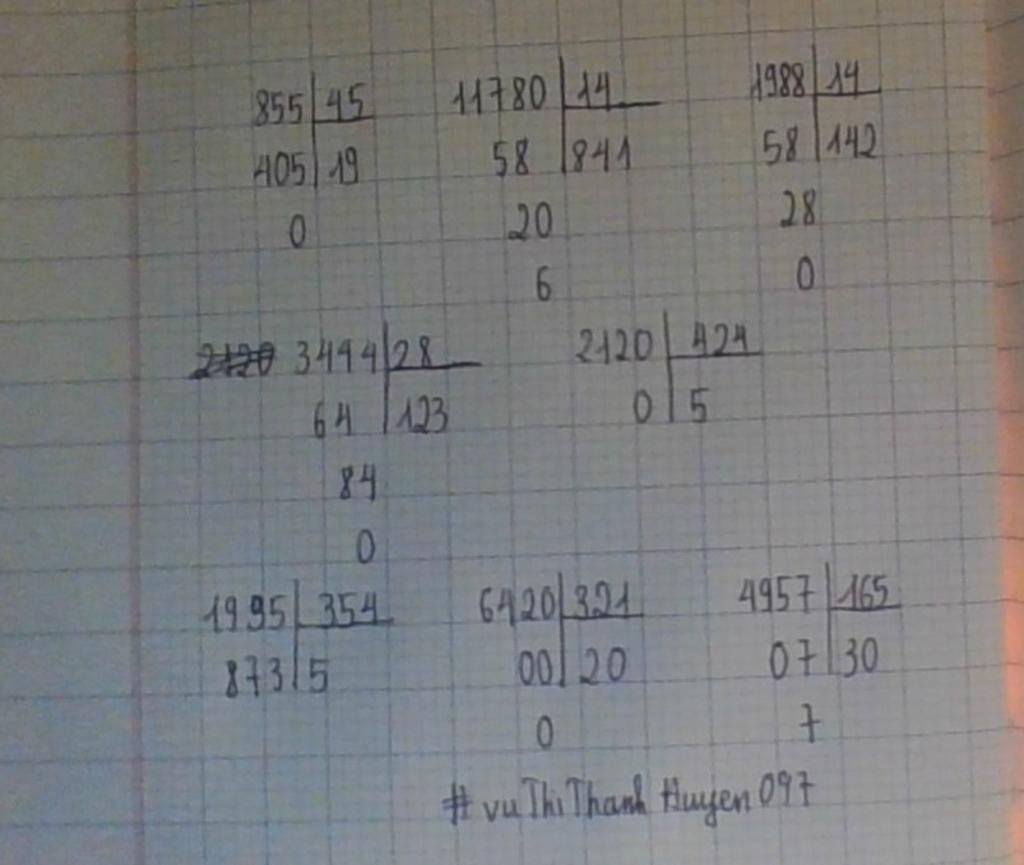 855 45 11780 14 1988 14
405 19 58 841 58 142
0 20 28
6 0
3444 28 2120 424
64 123 0 5
84
0
1995 354 6420 321 4957 165
873 5 00 20 07 30
0 7
# vu Thi Thanh Huyen 097